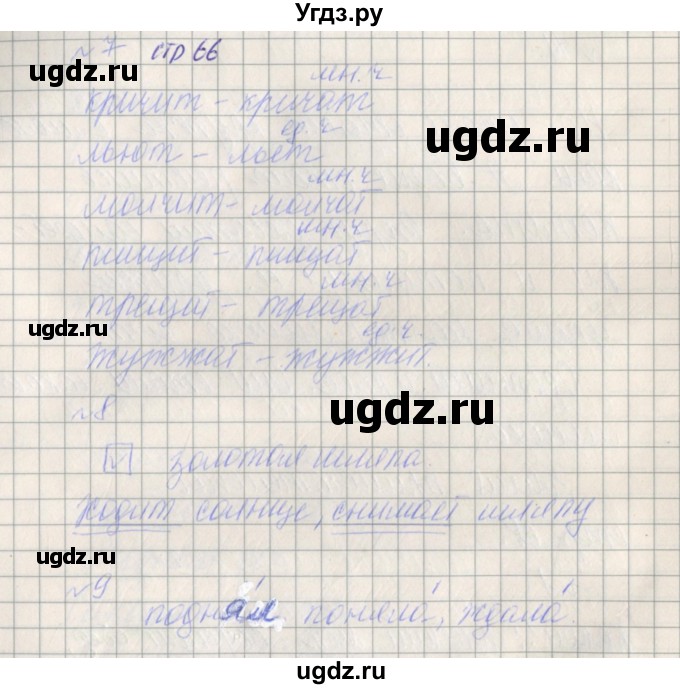 Угдз.ру
№7 стр 66
мн.ч
кричит - кричат
ед.ч
льют - льёт
мн.ч
молчит - молчат
мн.ч
пищит - пищат
мн.ч
трещит - трещат
ед.ч.
жужжат - жужжит.
№8
золотая шляпа.
Ходит солнце, снимает шляпу
№9
поднял, поняла, ждала.
ugdz.ru
ugdz.ru
ugdz.ru
ugdz.ru
ugdz.ru
ugdz.ru
ugdz.ru